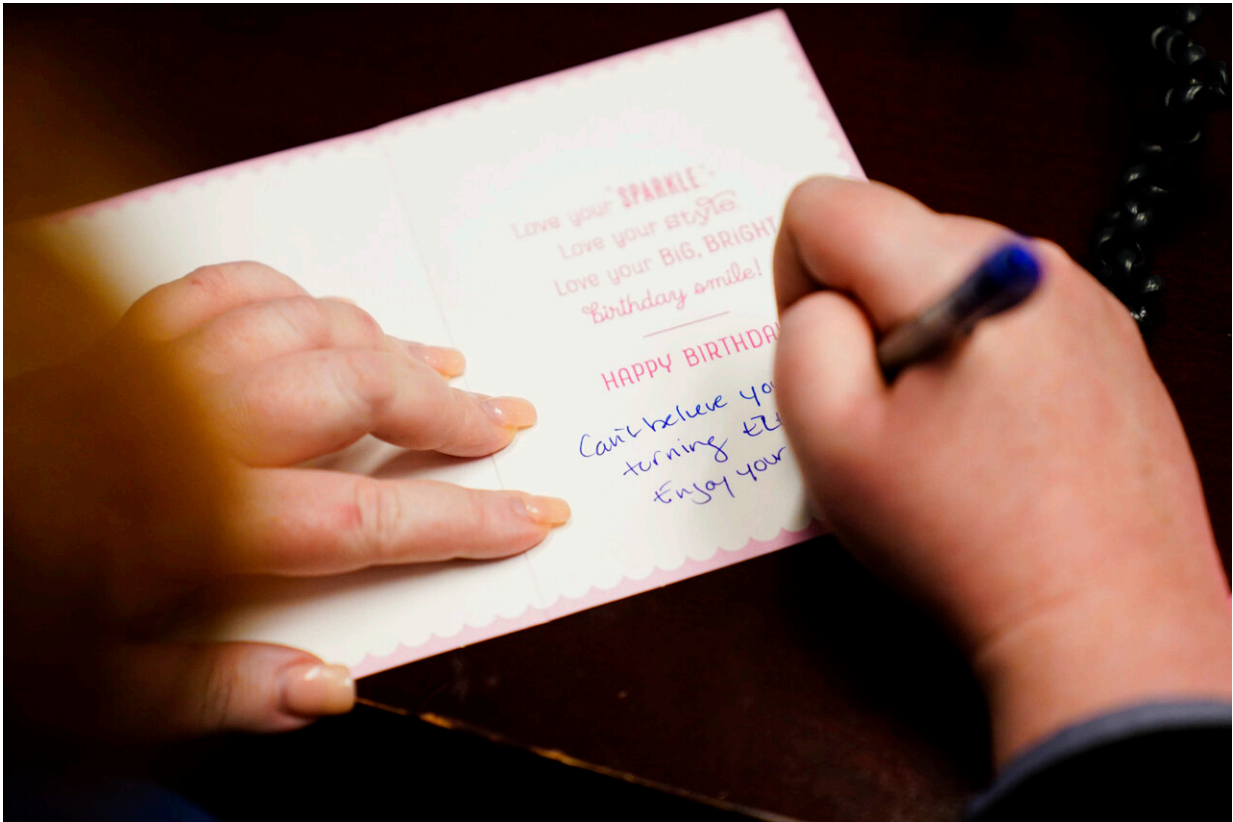 Love your "SPARKLE"-
Love your style
Love your BIG, BRIGHT
Birthday smile!
HAPPY BIRTHDA
Can't believe yo
turning
Enjoy your